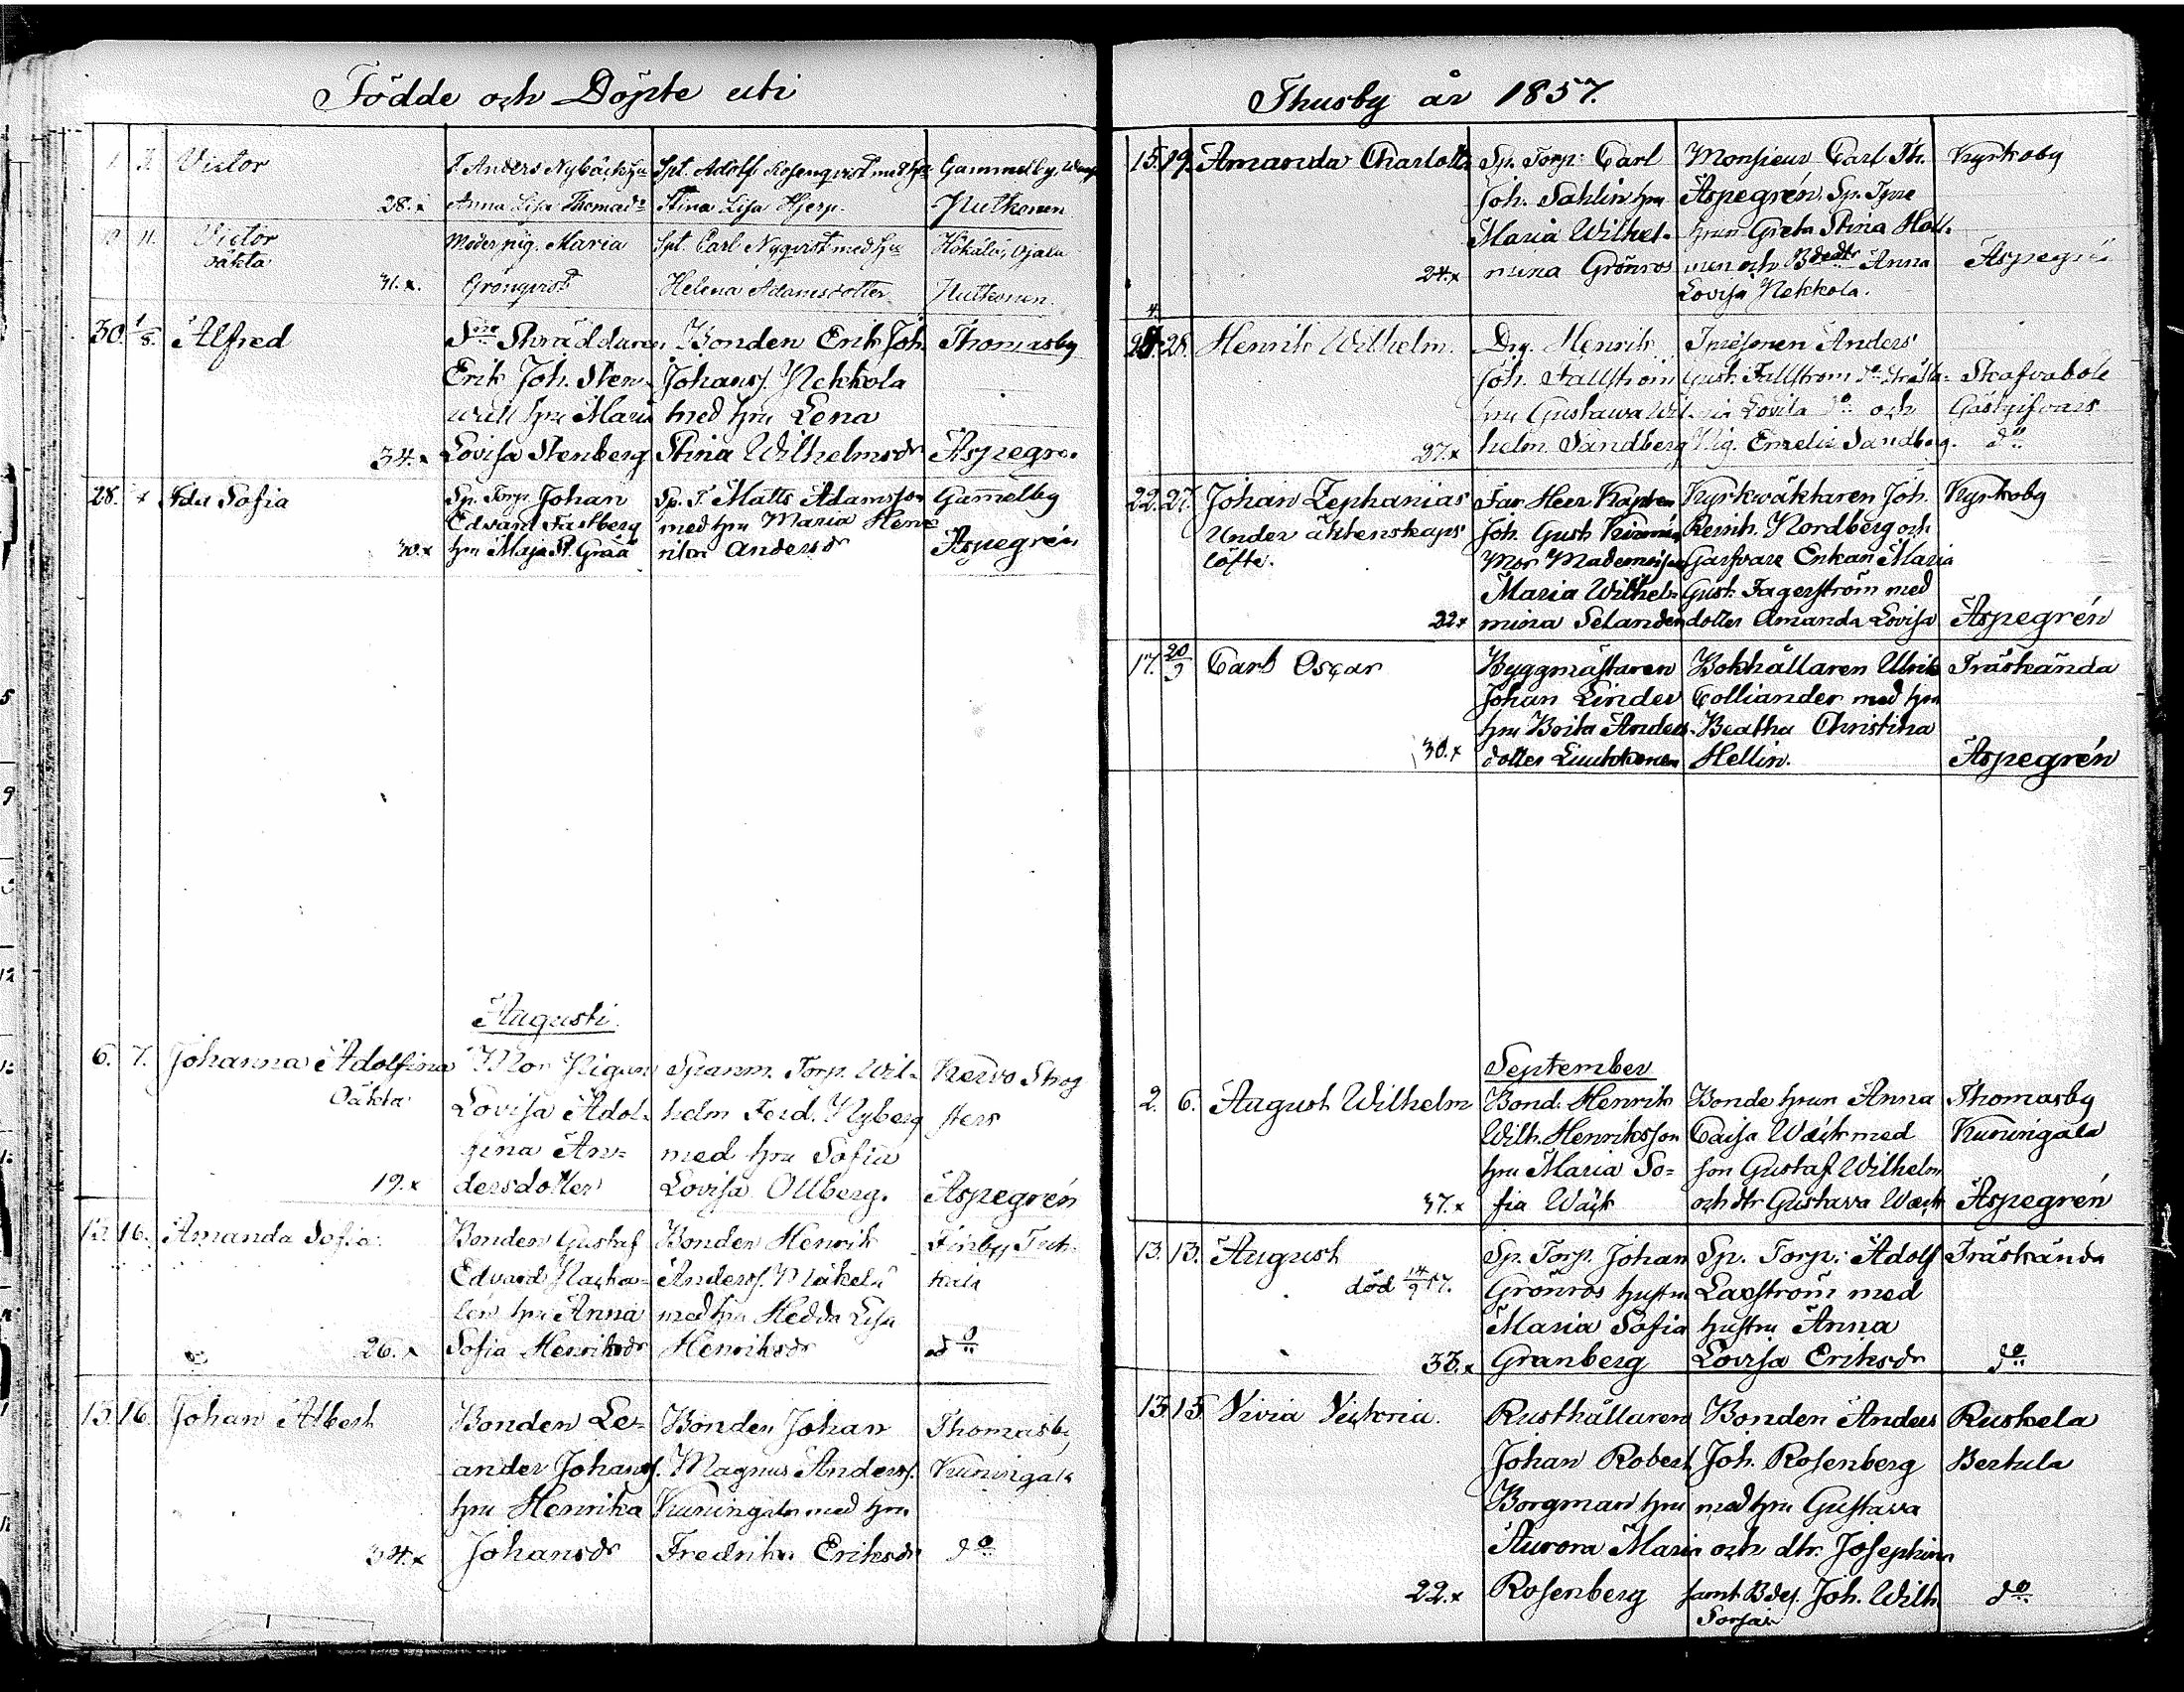 Födde och Döpte uti
Victor
28. x
T. Anders Nybäck hu
Anna Lisa Thomasdr
Spt. Adolf Rosenqvist med hu
Stina Lisa Hjerp.
Gammelby
Huthonen
11.
Victor
oäkta
31. x.
Moder pig. Maria
Grönqvist
Spt. Carl Nyqvist med hu
Helena Adamsdotter
Hökälä, Ojala
Huthonen.
30. 1/5. Alfred
34. x
Skräddaren
Erik Joh. Sten-
hru Maria
Lovisa Stenberg
Bonden Erik Joh.
Johanss. Nekkola
med hru Lena
Stina Wilhelmsdr
Thomasby
Aspegrén
28. x Ada Sofia
30. x
Sp. Torp. Johan
Edvard Fastberg
hru Maja St. Graa
Sp. T. Matts Adamsson
med hru Maria Hen-
rika Andersdr
Gam̄elby
Aspegrén
Augusti.
6. 7. Johanna Adolfina
Oäkta
19. x
Mor Pigan
Lovisa Adol-
fina An-
dersdotter
Spanm. Torp. Wil-
helm Ferd. Nyberg
med hru Sofia
Lovisa Ollberg.
Kervo Skog
sters
Aspegrén
13. 16. Amanda Sofia.
26. x
Bonden Gustaf
Edvard Nacka-
len hru Anna
Sofia Henriksdr
Bonden Henrik
Anderss. Mäkelä
med hru Hedda Lisa
Henriksdr
Finby Tuk-
kula
do
13. 16. Johan Albert
34. x
Bonden Le-
ander Johanss.
hru Henrika
Johansdr
Bonden Johan
Magnus Anderss.
Kuningala med hru
Fredrika Eriksdr
Thomasby
Kuningala
do
Thusby år 1857.
15. 19. Amanda Charlotta
24. x
Sp. Torp: Carl
Joh. Sahlin hru
Maria Wilhel-
mina Grönros
Monsieur Carl Th.
Aspegrén, Sp. Tpre
hrun Greta Stina Holl-
men och Bdedtr Anna
Lovisa Nekkola.
Kyrkoby
Aspegrén
28. Henrik Wilhelm.
27. x
Drg. Henrik
Joh. Fallström
hru Gustawa Wil-
helm. Sandberg
Inhysonen Anders
Gust. Fallström
Lovisa do och
Pig. Emelie Sandberg.
Skafvaböle
Gästgifvars
do
22. 27. Johan Zephanias
Under äktenskaps
löfte.
22 x
Far Herr Kapten
Joh. Gust.
Mor Mademoisen
Maria Wilhel-
mina Selander
Kyrkwäktaren Joh.
Reinh. Nordberg och
Garfvare Enkan Maria
Gust. Fagerström med
dotter Amanda Lovisa
Kyrkoby
Aspegrén
17. 20/9 Carl Oscar
30. x
Byggmästaren
Johan Linder
hru Brita Anders-
dotter Luukkonen
Bokhållaren Ulrik
Colliander med hru
Beatha Christina
Hellin.
Träskända
Aspegrén
September
2. 6. August Wilhelm
37. x
Bond. Henrik
Wilh. Henriksson
hru Maria So-
fia Wäck
Bonde hrun Anna
Caisa Wäck med
son Gustaf Wilhelm
och dtr Gustava Wäck
Thomasby
Kuningala
Aspegrén
13. 13. August
död 14/9 57.
33. x
Sp. Torp. Johan
Grönros hustru
Maria Sofia
Granberg
Sp. Torp: Adolf
Lagström med
hustru Anna
Lovisa Eriksdr
Träskända
do
13. 15 Vivia Victoria.
22. x
Rusthållaren
Johan Robert
Borgman hru
Aurora Maria
Rosenberg
Bonden Anders
Joh. Rosenberg
med hru Gustava
och dtr. Josephina
samt Bdes. Joh. Wilh.
Sorjas
Ruskela
Bertula
do